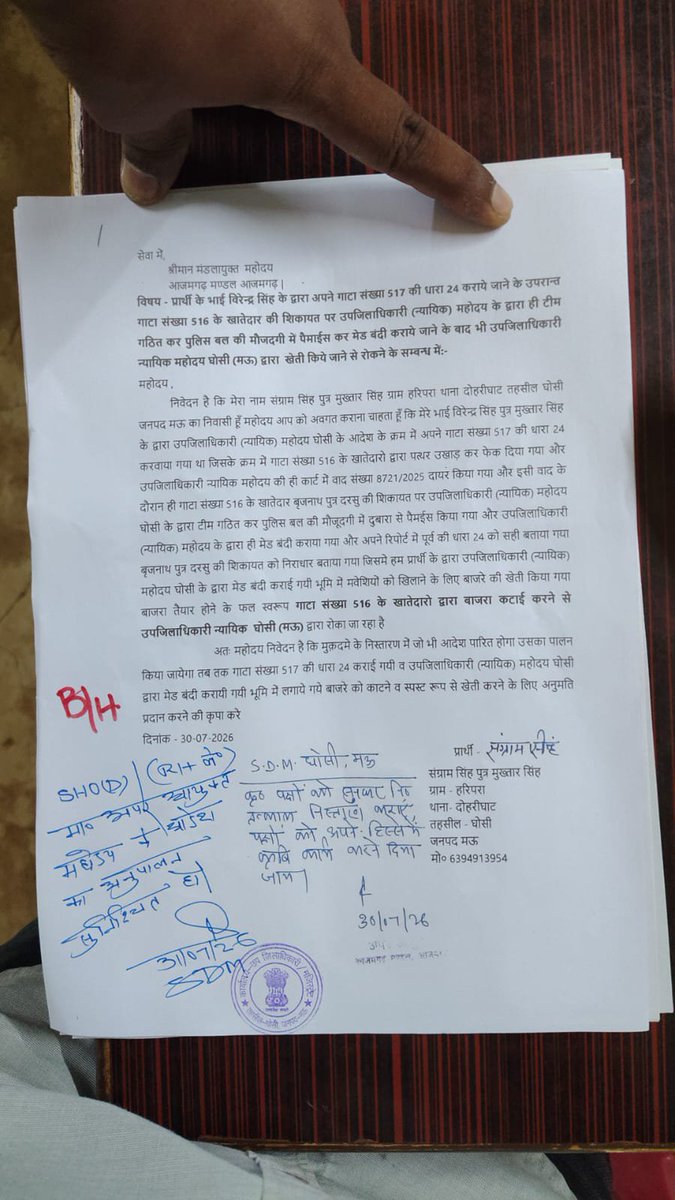 सेवा में,
श्रीमान मंडलायुक्त महोदय
आजमगढ़ मण्डल आजमगढ़|
विषय - प्रार्थी के भाई विरेन्द्र सिंह के द्वारा अपने गाटा संख्या 517 की धारा 24 कराये जाने के उपरान्त
गाटा संख्या 516 के खातेदार की शिकायत पर उपजिलाधिकारी (न्यायिक) महोदय के द्वारा ही टीम
गठित कर पुलिस बल की मौजदगी में पैमाईस कर मेड बंदी कराये जाने के बाद भी उपजिलाधिकारी
न्यायिक महोदय घोसी (मऊ) द्वारा खेती किये जाने से रोकने के सम्बन्ध में:-
महोदय ,
निवेदन है कि मेरा नाम संग्राम सिंह पुत्र मुख्तार सिंह ग्राम हरिपरा थाना दोहरीघाट तहसील घोसी
जनपद मऊ का निवासी हूँ महोदय आप को अवगत कराना चाहता हूँ कि मेरे भाई विरेन्द्र सिंह पुत्र मुख्तार सिंह
के द्वारा उपजिलाधिकारी (न्यायिक) महोदय घोसी के आदेश के क्रम में अपने गाटा संख्या 517 की धारा 24
करवाया गया था जिसके क्रम में गाटा संख्या 516 के खातेदारो द्वारा पत्थर उखाड़ कर फेक दिया गया और
उपजिलाधिकारी न्यायिक महोदय की ही कार्ट में वाद संख्या 8721/2025 दायर किया गया और इसी वाद के
दौरान ही गाटा संख्या 516 के खातेदार बृजनाथ पुत्र दरसु की शिकायत पर उपजिलाधिकारी (न्यायिक) महोदय
घोसी के द्वारा टीम गठित कर पुलिस बल की मौजूदगी में दुबारा से पैमईस किया गया और उपजिलाधिकारी
(न्यायिक) महोदय के द्वारा ही मेड बंदी कराया गया और अपने रिपोर्ट में पूर्व की धारा 24 को सही बताया गया
बृजनाथ पुत्र दरसु की शिकायत को निराधार बताया गया जिसमे हम प्रार्थी के द्वारा उपजिलाधिकारी (न्यायिक)
महोदय घोसी के द्वारा मेड बंदी कराई गयी भूमि में मवेशियों को खिलाने के लिए बाजरे की खेती किया गया
बाजरा तैयार होने के फल स्वरूप गाटा संख्या 516 के खातेदारो द्वारा बाजरा कटाई करने से
उपजिलाधिकारी न्यायिक घोसी (मऊ) द्वारा रोका जा रहा है
अतः महोदय निवेदन है कि मुक़दमे के निस्तारण में जो भी आदेश पारित होगा उसका पालन
किया जायेगा तब तक गाटा संख्या 517 की धारा 24 कराई गयी व उपजिलाधिकारी (न्यायिक) महोदय घोसी
द्वारा मेड बंदी करायी गयी भूमि में लगाये गये बाजरे को काटने व स्पस्ट रूप से खेती करने के लिए अनुमति
प्रदान करने की कृपा करे
दिनांक - 30-07-2026
प्रार्थी - संग्राम सींह
संग्राम सिंह पुत्र मुख्तार सिंह
ग्राम - हरिपरा
थाना- दोहरीघाट
तहसील - घोसी
जनपद मऊ
मो० 6394913954
B/H
S.D.M घोसी, मऊ
पक्षों को सुनकर
तत्काल निस्तारण कराएं,
पक्षों को अपने हिस्से में
कृषि कार्य करने दिया
जाय।
30/07/26
SHO(D)
मा० अपर आयुक्त
महोदय के आदेश
का अनुपालन
सुनिश्चित हो।
31/07/26
SDM